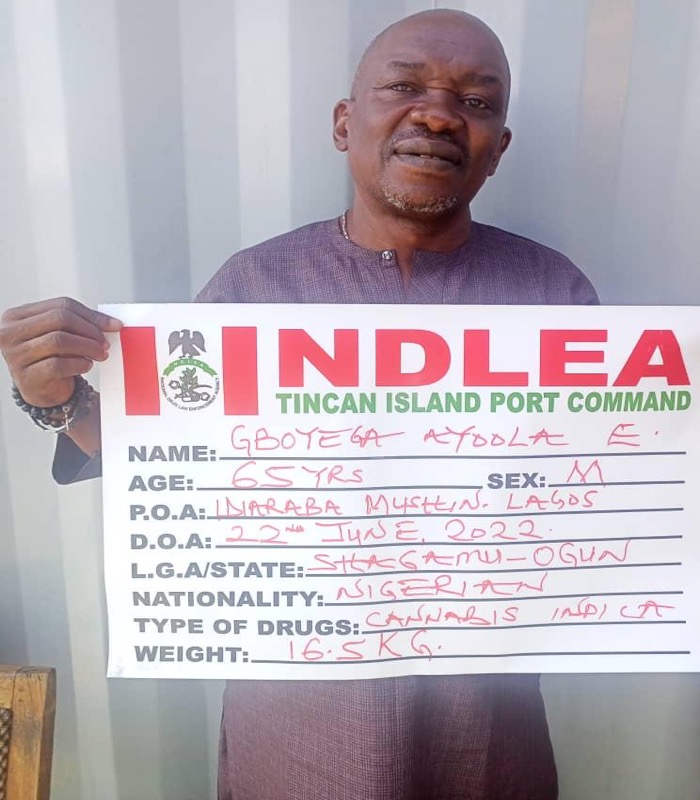 NDLEA
TINCAN ISLAND PORT COMMAND
NAME: GBOYEGA AYOOLA E.
AGE: 65 YRS SEX: M
P.O.A: MUSHIN. LAGOS
D.O.A: 22nd JUNE, 2022.
L.G.A/STATE: SHAGAMU-OGUN
NATIONALITY: NIGERIAN
TYPE OF DRUGS: CANNABIS INDICA
WEIGHT: 16.5KG.